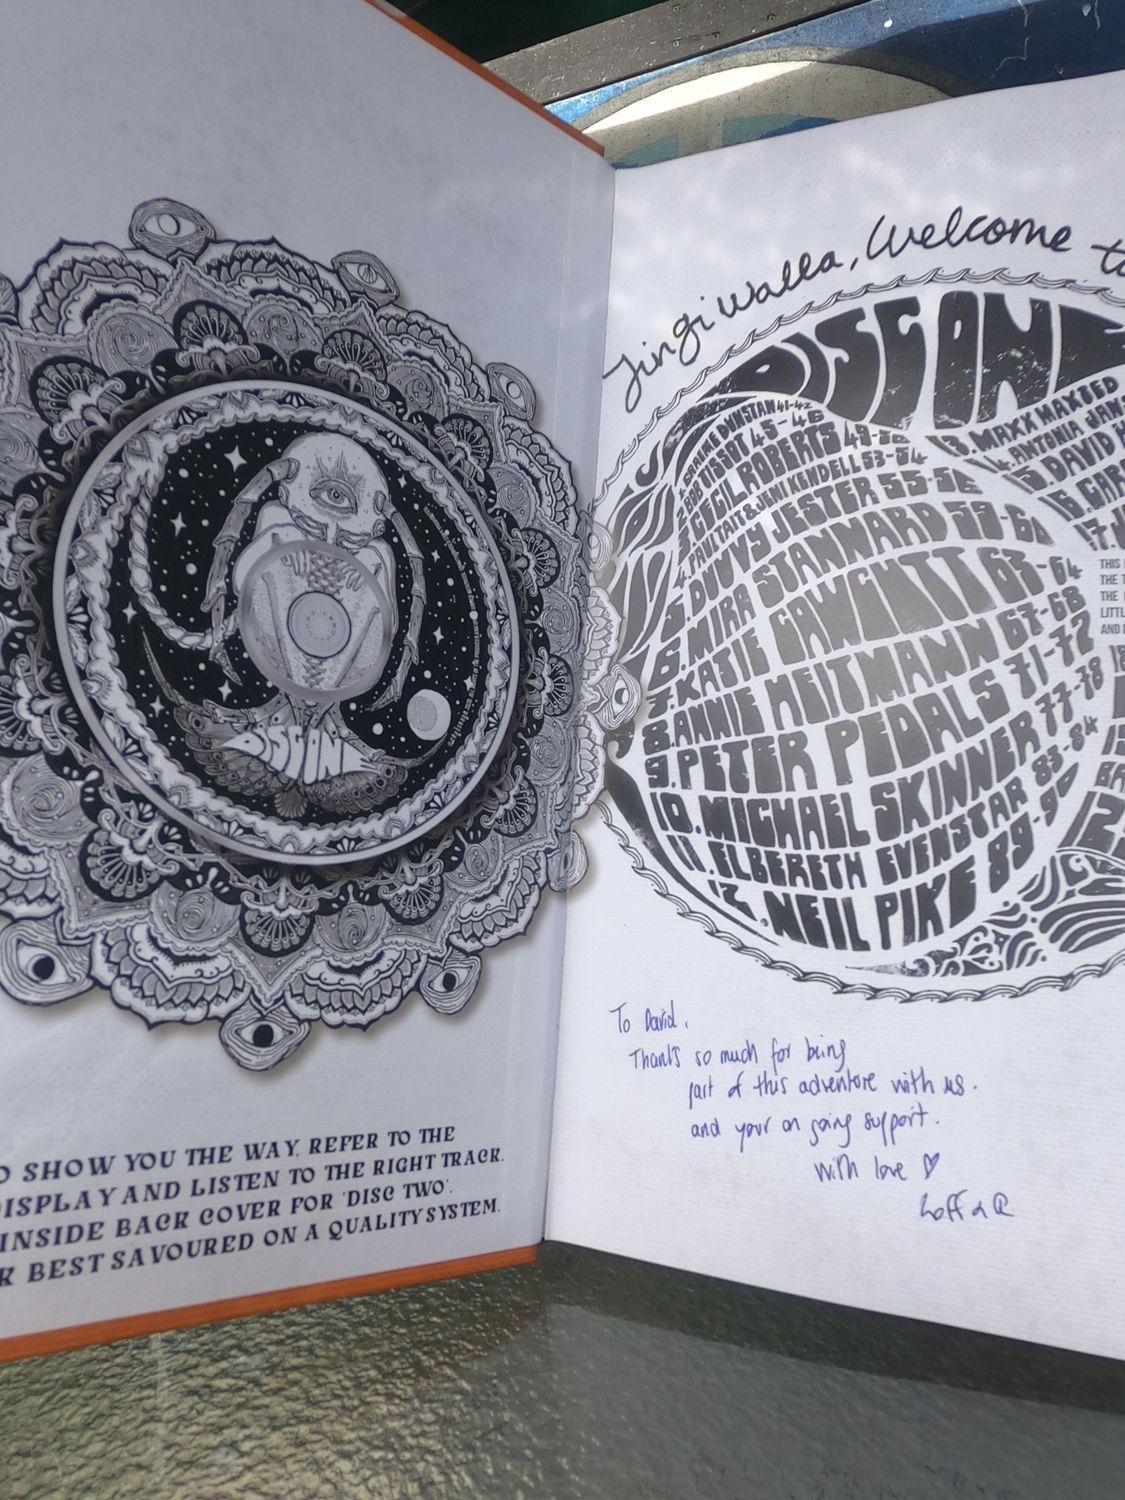 DISC ONE
O SHOW YOU THE WAY, REFER TO THE
DISPLAY AND LISTEN TO THE RIGHT TRACK.
INSIDE BACK COVER FOR 'DISC TWO'.
R BEST SAVOURED ON A QUALITY SYSTEM.
Jingi walla, Welcome to
DISC ONE
1. GRAEME DUNSTAN 41-42
2. BOB TISSOT 45-46
3. CECIL ROBERTS 49-50
4. PAUL TAIT & JENI KENDELL 53-54
5. DUVVY JESTER 55-56
6. MIRA STANNARD 59-60
7. KATIE CAWCUTT 63-64
8. ANNIE HEITMANN 67-68
9. PETER PEDALS 71-72
10. MICHAEL SKINNER 77-78
11. ELBERETH EVENSTAR 83-84
12. NEIL PIKE 89-90
13. MAXX MAXTED
14. ANTONIA JANS
15. DAVID H
16. GAR
17.
THIS
THE T
THE
LITTL
AND
To David,
Thanks so much for being
part of this adventure with us.
and your on going support.
with love ♡